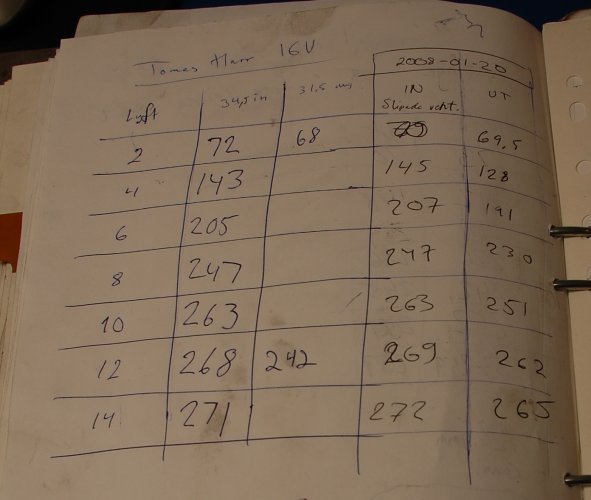 Tomas Harr 16V
2008-01-20
Lyft 34,5 in 31,5 IN UT
Slipade
2 72 68 69,5
4 143 145 128
6 205 207 191
8 247 247 230
10 263 263 251
12 268 242 269 262
14 271 272 265